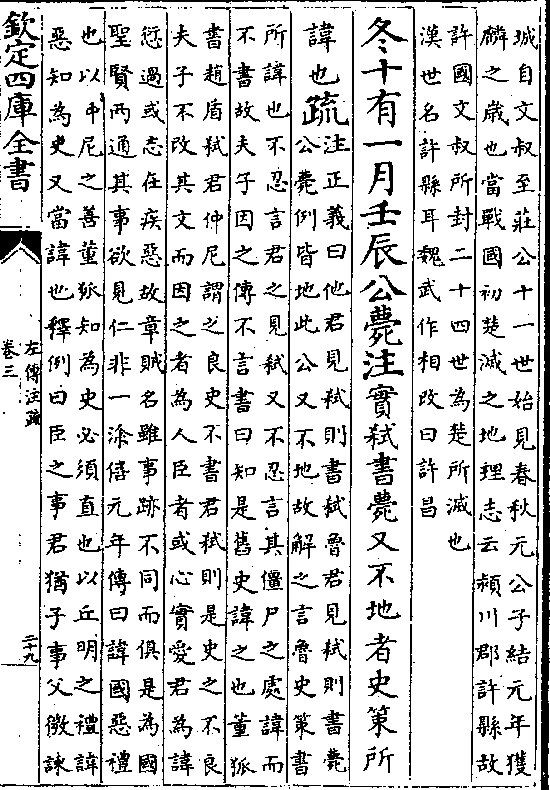 城自文叔至莊公十一世始見春秋元公子結元年獲
麟之歲也當戰國初楚滅之地理志云潁川郡許縣故
許國文叔所封二十四世為楚所滅也
漢世名許縣耳魏武作相改曰許昌
冬十有一月壬辰公薨注實弒書薨又不地者史策所
諱也疏注正義曰他君見弒則書弒魯君見弒則書薨
公薨例皆地此公又不地故解之言魯史策書
所諱也不忍言君之見弒又不忍言其僵尸之處諱而
不書故夫子因之傳不言書曰知是舊史諱之也董狐
書趙盾弒君仲尼謂之良史不書君弒則是史之不良
夫子不改其文而因之者為人臣者或心實愛君為諱
愆過或志在疾惡故章賊名雖事跡不同而俱是為國
聖賢兩通其事欲見仁非一塗僖元年傳曰諱國惡禮
也以仲尼之善董狐知為史必須直也以丘明之禮諱
惡知為史又當諱也釋例曰臣之事君猶子事父微諫
欽定四庫全書
左傳注疏
卷三
二十九